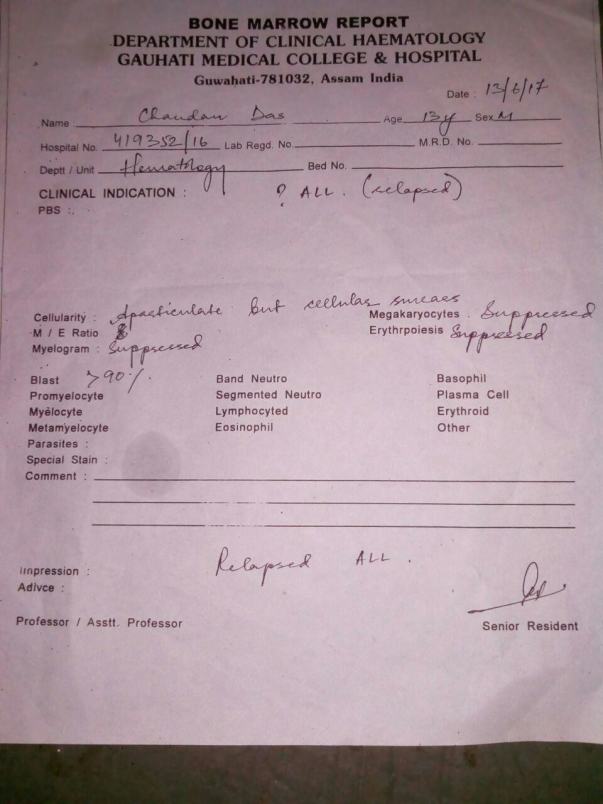 BONE MARROW REPORT
DEPARTMENT OF CLINICAL HAEMATOLOGY
GAUHATI MEDICAL COLLEGE & HOSPITAL
Guwahati-781032, Assam India
Date : 13/6/17
Name Chandan Das Age 13y Sex M
Hospital No. 419352/16 Lab Regd. No. M.R.D. No.
Deptt / Unit Hematology Bed No.
CLINICAL INDICATION : ? ALL. (relapsed)
PBS :
Cellularity : Aparticulate but cellular smears Megakaryocytes . Suppressed
M / E Ratio Erythrpoiesis Suppressed
Myelogram : Suppressed
Blast >90% Band Neutro Basophil
Promyelocyte Segmented Neutro Plasma Cell
Myelocyte Lymphocyted Erythroid
Metamyelocyte Eosinophil Other
Parasites :
Special Stain :
Comment :
Impression : Relapsed ALL .
Adivce :
Professor / Asstt. Professor Senior Resident